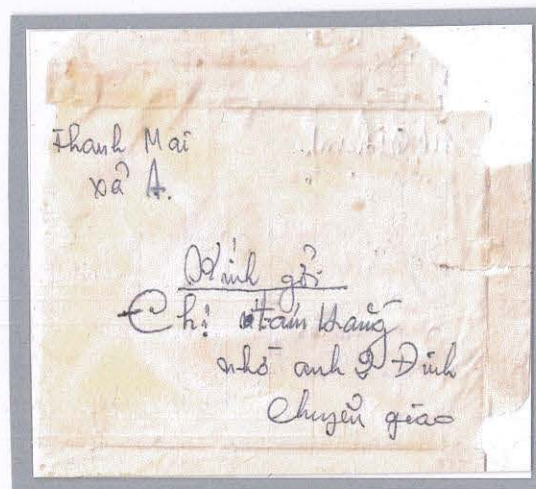 Thanh Mai
xã A.
Kính gởi
Chị Tám
nhờ anh 2 Đình
chuyển giao